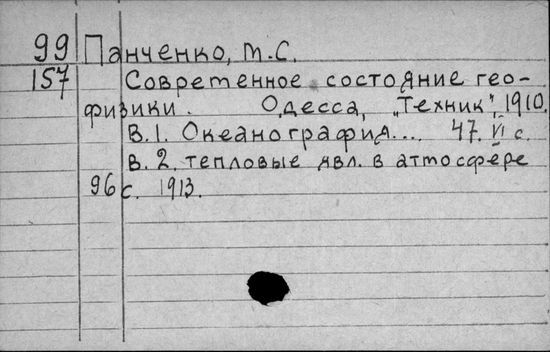 99 Панченко, М.С.
157 Современное состояние гео-
физики. Одесса, „Техник", 1910.
В.1. Океанография... 47. VI с.
В. 2. тепловые явл. в атмосфере
96 с. 1913.